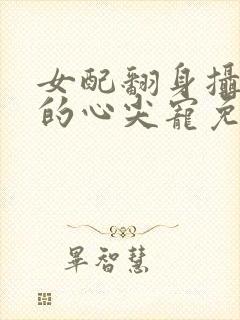 女配翻身攝
的心尖寵免
畢智慧